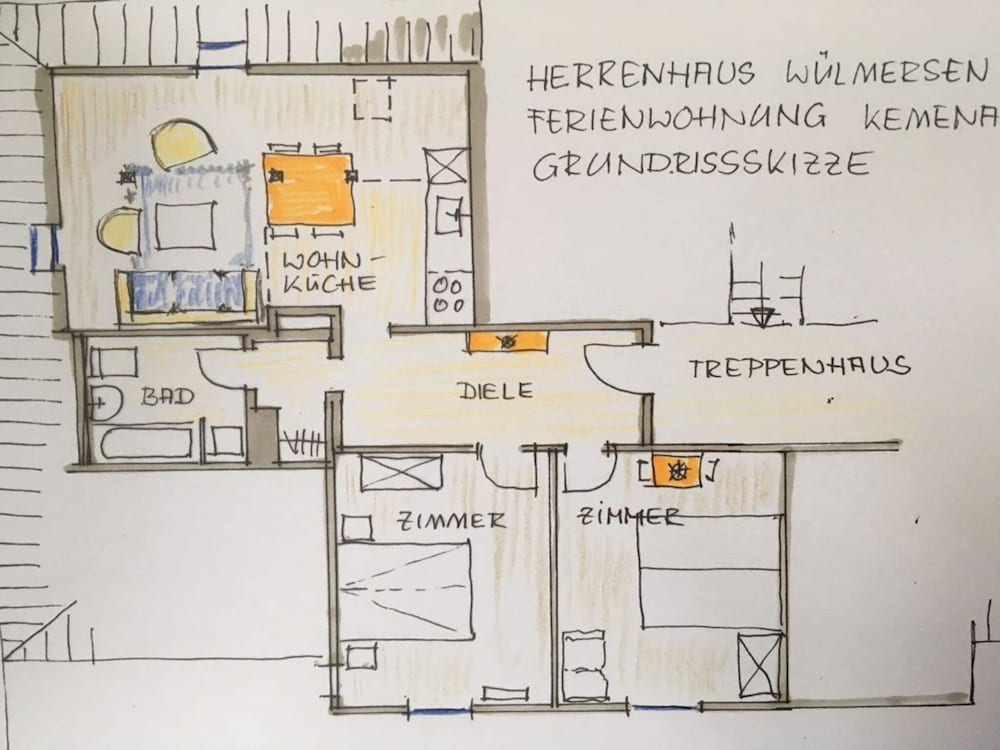 HERRENHAUS WÜLMERSEN
FERIENWOHNUNG KEMENA
GRUNDRISSSKIZZE
WOHN-
KÜCHE
TREPPENHAUS
DIELE
BAD
ZIMMER
ZIMMER